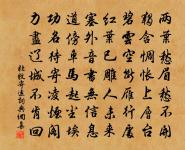 兩葉愁眉愁不開
獨含惆悵上層台
碧雲空斷雁行處
紅葉已雕人未來
塞外音書無信息
道傍車馬起塵埃
功名待寄凌煙閣
力盡遼城不肯回
杜牧寄遠詞典網